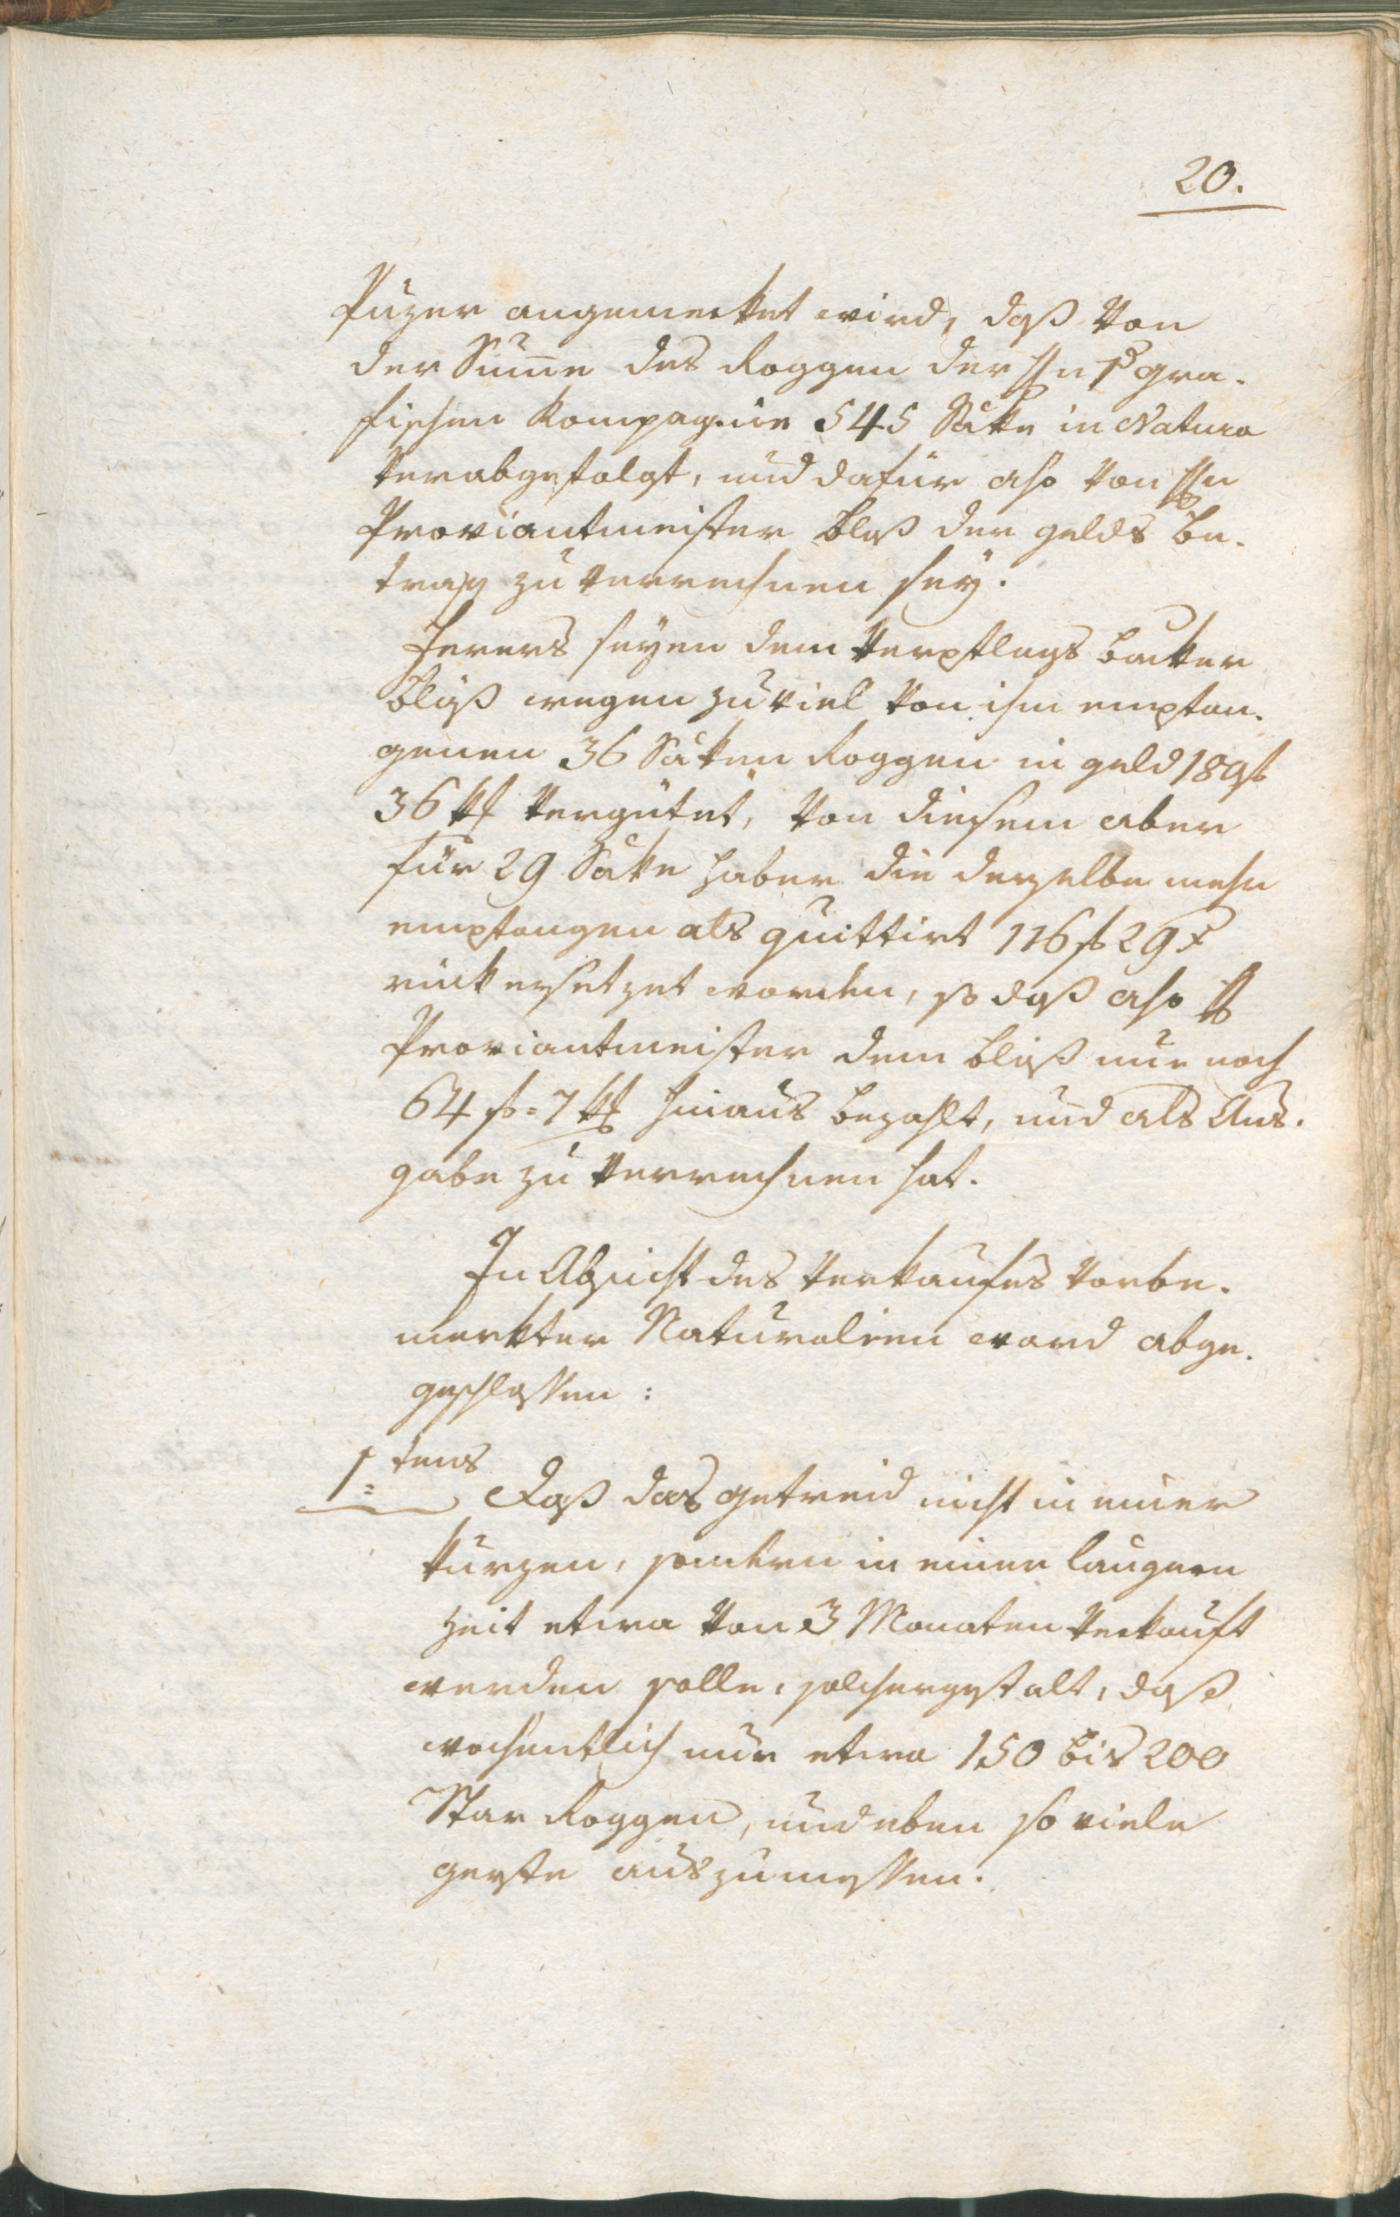 20.
Puzer angemerket wird, daß von
der Sum̄e des Roggen der Hn gra-
fischen Kompagnie 545 Säke in Natura
verabgefolgt, und dafür also von Hn
Proviantmeister bloß der gelds be-
trag zu verrechnen sey.
Ferers seyen dem Verpflegs backer
Bläß wegen zuviel von ihm empfan-
genen 36 Säken Roggen in geld 180 f
36 kr vergütet, von diesem aber
für 29 Säke Haber die derselbe mehr
empfangen als quittirt 116 f 29 x
rückersetzet worden, so daß also H
Proviantmeister dem Bläß nur noch
64 f = 7 kr hinaus bezahlt, und als Aus-
gabe zu verrechnen hat.
In Absicht des Verkaufes vorbe-
merkter Naturalien ward abge-
geschlossen:
1tens Daß das getreid nicht in einer
kurzen, sondern in einer langern
Zeit etwa von 3 Monaten verkauft
werden solle, solchergestalt, daß
wochentlich nur etwa 150 bis 200
Star Roggen, und eben so viele
gerste auszumessen.